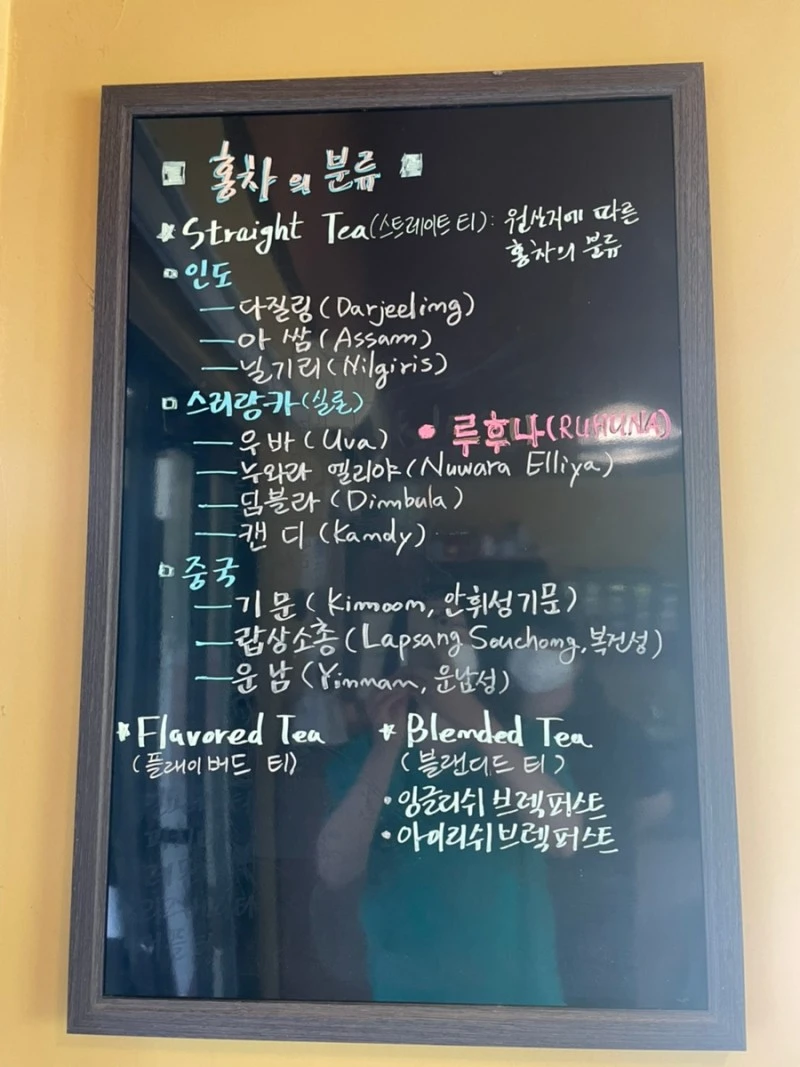 홍차의 분류
* Straight Tea(스트레이트 티): 원산지에 따른
홍차의 분류
인도
— 다질링 (Darjeeling)
— 아쌈 (Assam)
— 닐기리 (Nilgiris)
스리랑카 (실론)
— 우바 (Uva) • 루후나 (RUHUNA)
— 누와라 엘리야 (Nuwara Elliya)
— 딤블라 (Dimbula)
— 캔디 (Kandy)
중국
— 기문 (Kimoon, 안휘성기문)
— 랍상소총 (Lapsang Souchong, 복건성)
— 운남 (Yinnan, 운남성)
* Flavored Tea
(플래이버드 티)
* Blended Tea
(블랜디드 티)
• 잉글리쉬 브렉퍼스트
• 아이리쉬 브렉퍼스트